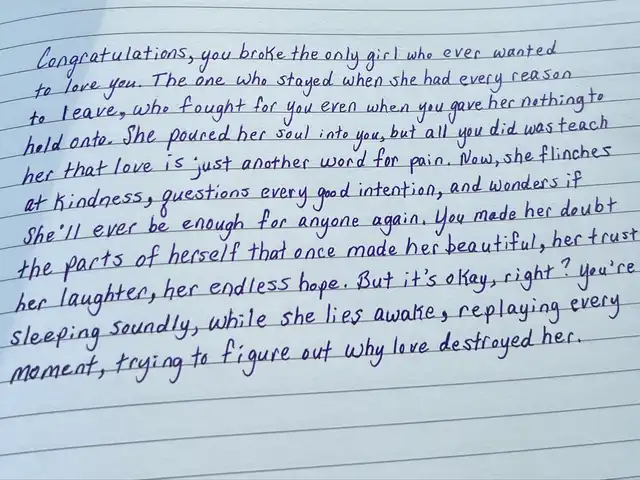 Congratulations, you broke the only girl who ever wanted
to love you. The one who stayed when she had every reason
to leave, who fought for you even when you gave her nothing to
hold onto. She poured her soul into you, but all you did was teach
her that love is just another word for pain. Now, she flinches
at kindness, questions every good intention, and wonders if
she'll ever be enough for anyone again. You made her doubt
the parts of herself that once made her beautiful, her trust
her laughter, her endless hope. But it's okay, right? You're
sleeping soundly, while she lies awake, replaying every
moment, trying to figure out why love destroyed her.